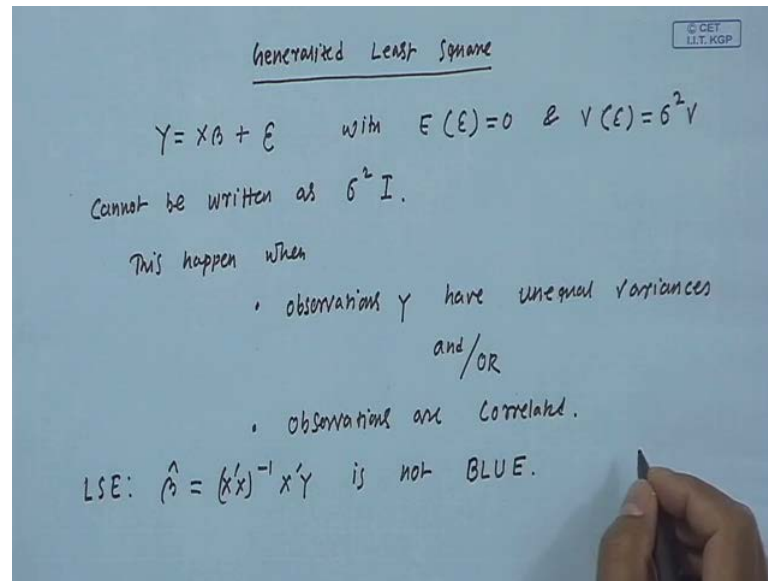 © CET
I.I.T. KGP
Generalized Least Square
Y = Xβ + ε with E(ε)=0 & V(ε)=σ²V
Cannot be written as σ² I.
This happen when
• observations Y have unequal variances
and/OR
• observations are correlated.
LSE: β̂ = (X'X)⁻¹ X'Y is not BLUE.